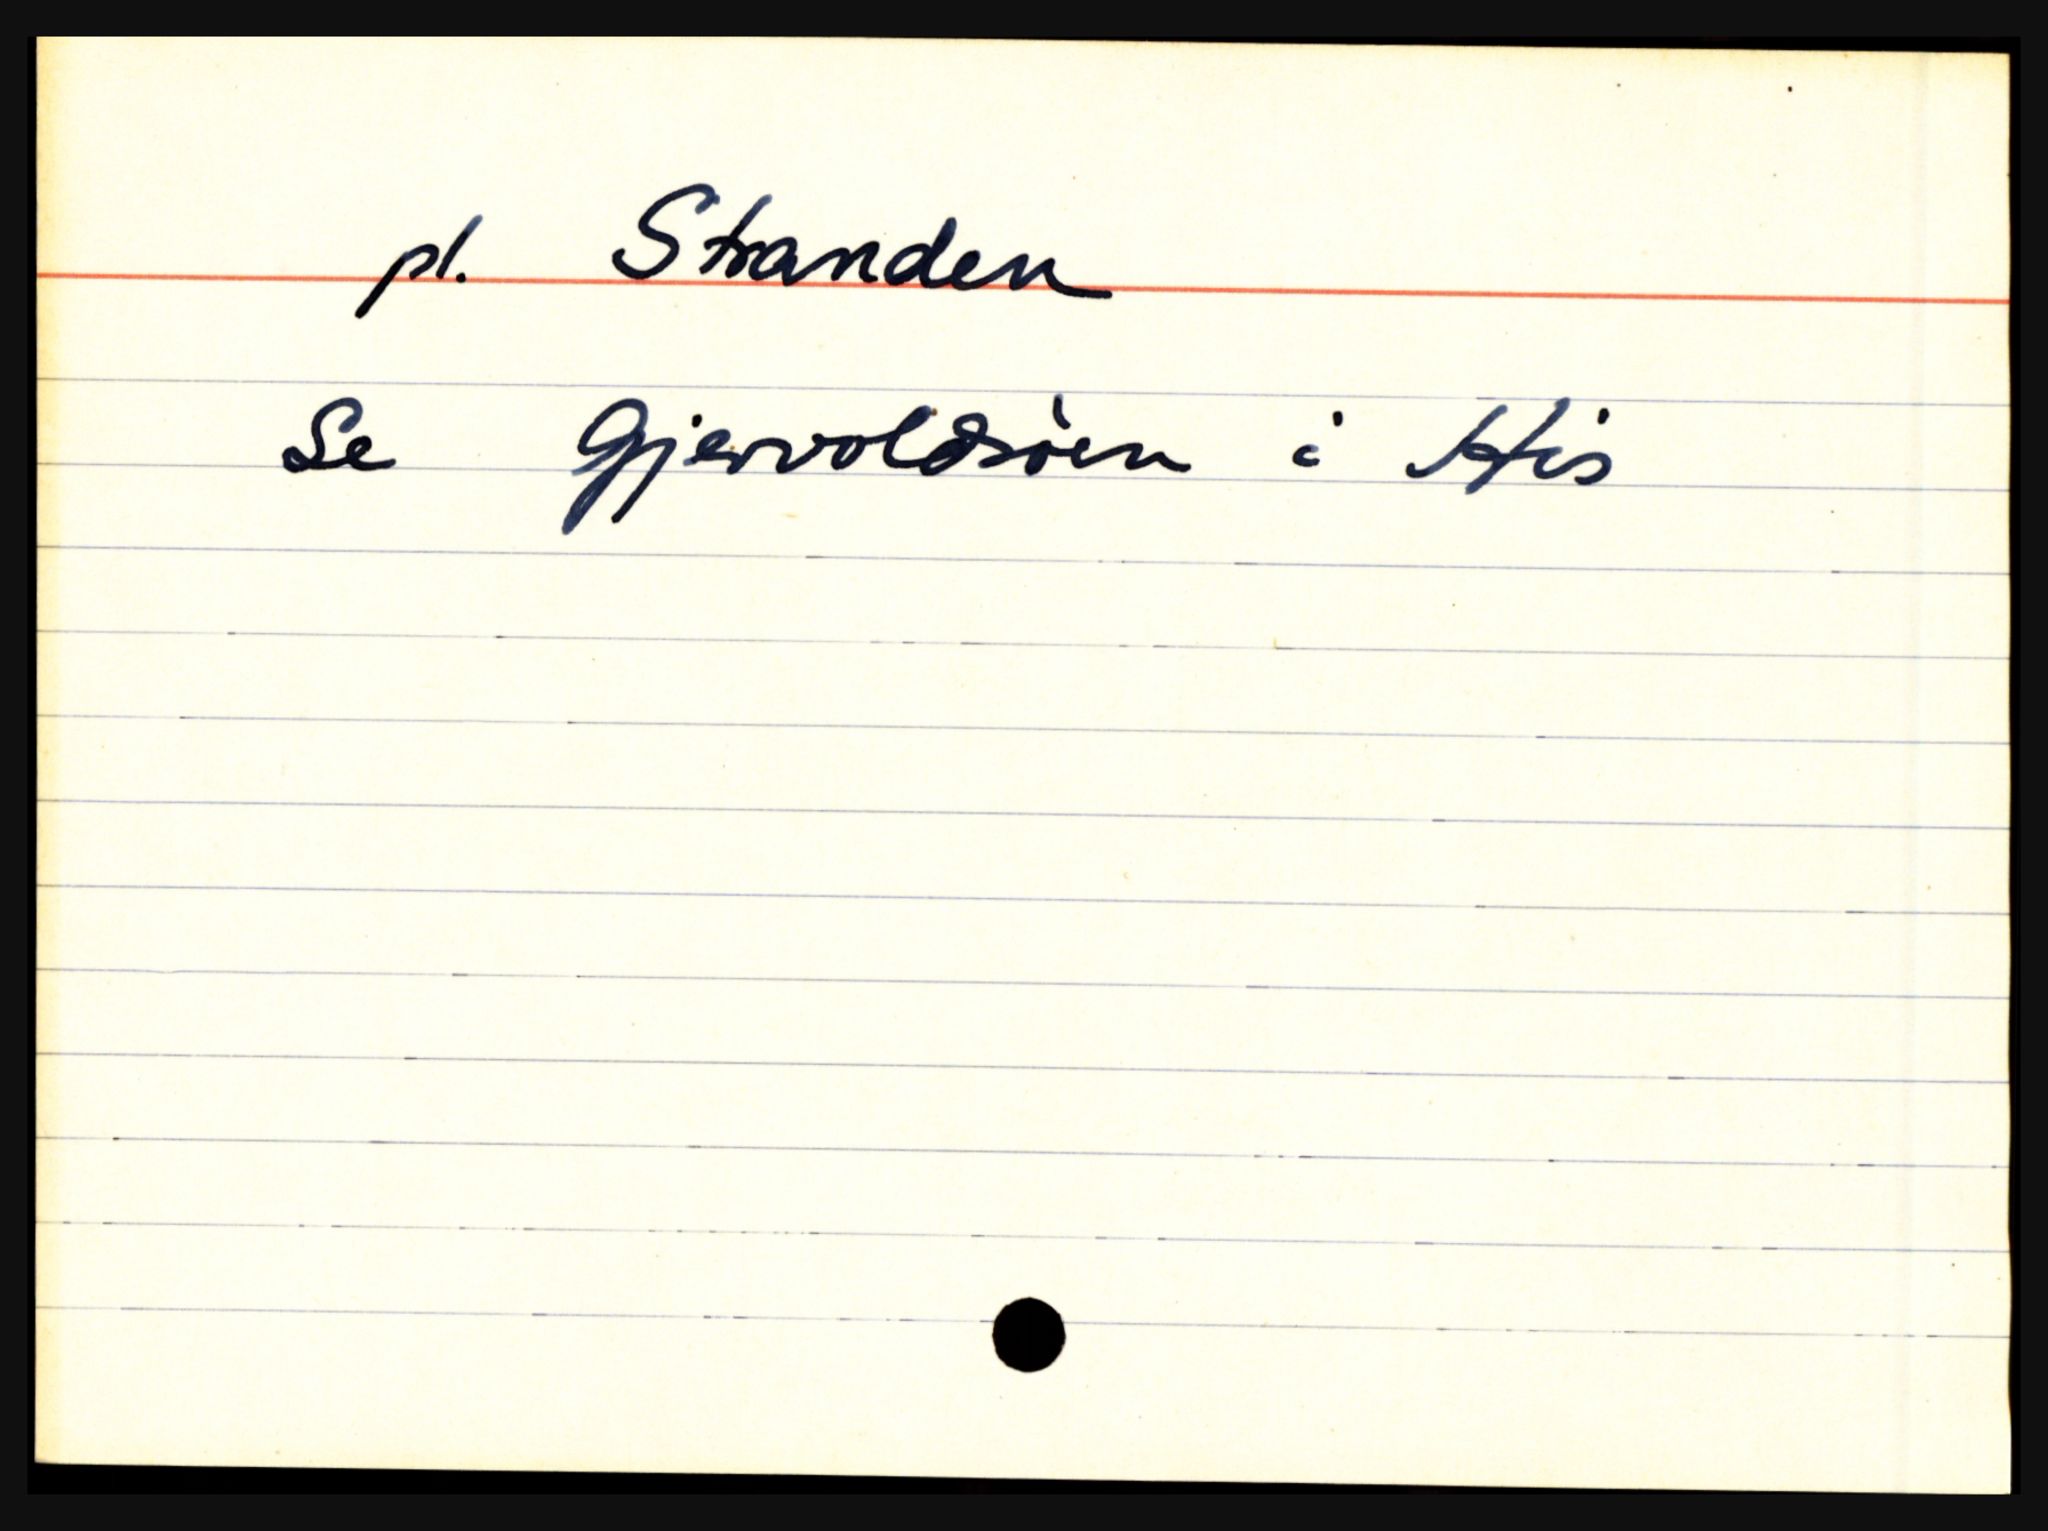 pl. Stranden
Se Gjervoldsøen i His